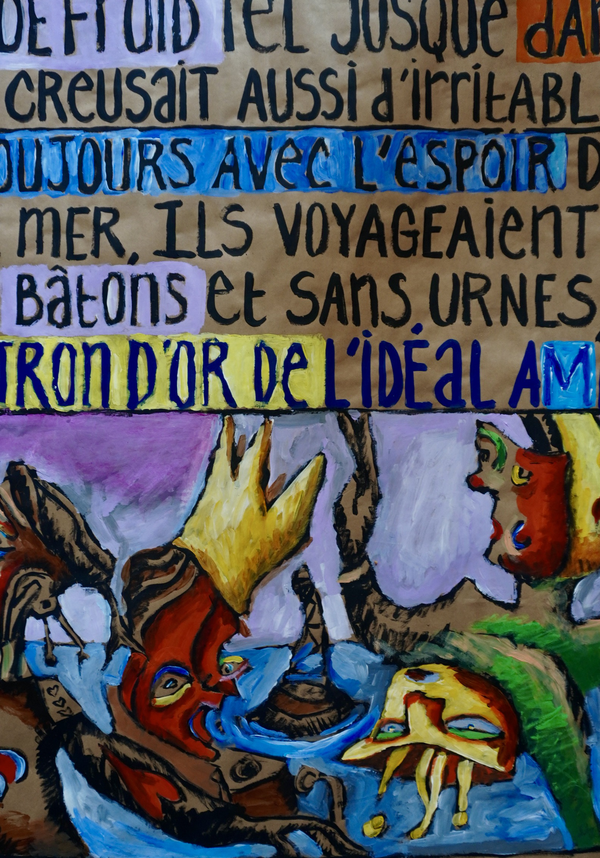 DE FROID TEL JUSQUE dA
CREUSAIT AUSSI d'irritABL
OUJOURS AVEC L'ESPOIR D
MER, ILS VOYAGEAIENT
BâtONS et SANS URNES,
TRON D'OR DE L'IDÉAL AM